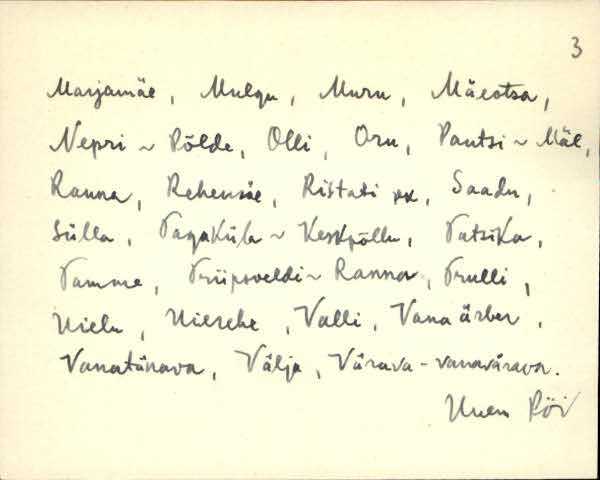 3
Marjamäe, Mulgu, Muru, Mäeotsa,
Nepri ~ Põlde, Olli, Oru, Pautsi ~ Mäe,
Ranna, Rehemäe, Ristati xx, Saadu,
Sülla, Tagaküla ~ Keskpõllu, Tatsika,
Tamme, Triipsveldi ~ Ranna, Trulli,
Valli, Vana ärber,
Vanatänava, Välja, Värava - vanavärava.